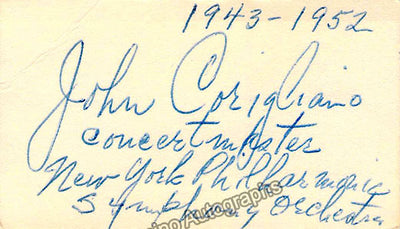 1943-1952
John Corigliano
concertmaster
New York Philharmonic
Symphony Orchestra
Autographs